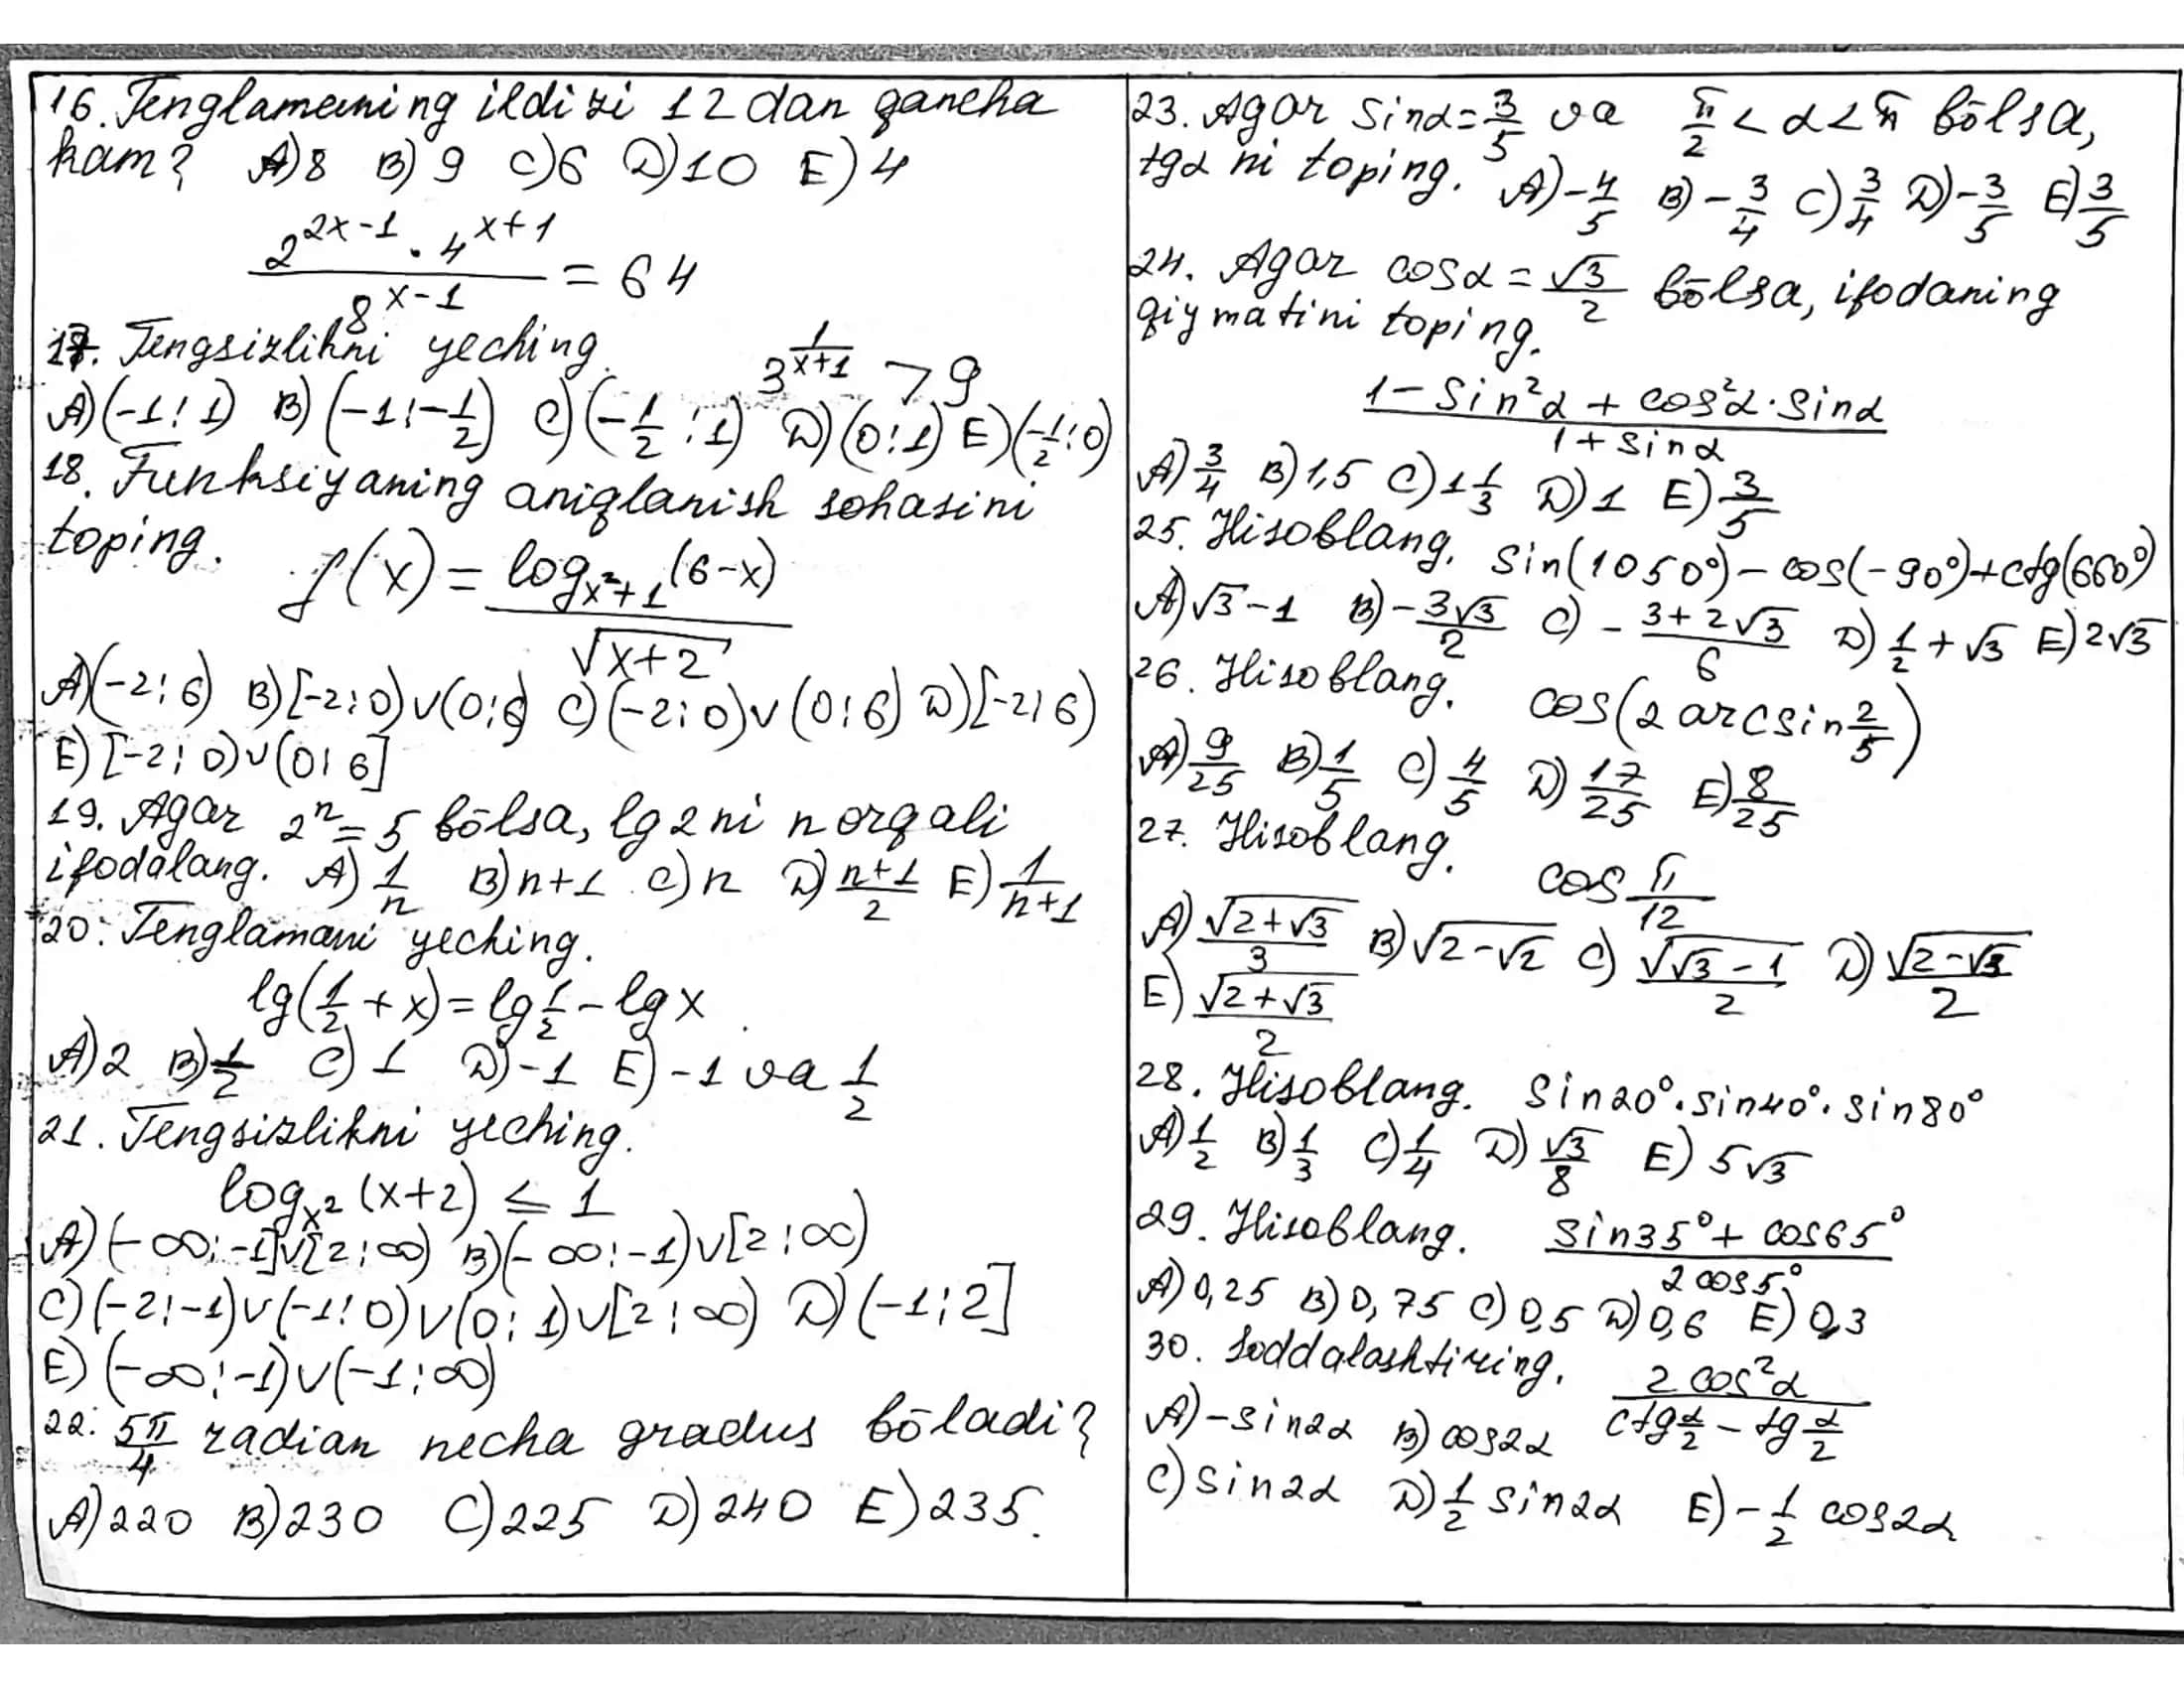 16. Tenglamaning ildizi 12 dan qancha
kam? A) 8 B) 9 C) 6 D) 10 E) 4
2^(2x-1) · 4^(x+1) / 8^(x-1) = 64
17. Tengsizlikni yeching. 3^(1/(x+1)) > 9
A) (-1; 1) B) (-1; -1/2) C) (-1/2; 1) D) (0; 1) E) (-1/2; 0)
18. Funksiyaning aniqlanish sohasini
toping. f(x) = log_(x²+1) (6-x) / √(x+2)
A) (-2; 6) B) [-2; 0) ∪ (0; 6) C) (-2; 0) ∪ (0; 6) D) [-2; 6)
E) [-2; 0) ∪ (0; 6]
19. Agar 2^n = 5 bōlsa, lg2 ni n orqali
ifodalang. A) 1/n B) n+1 C) n D) (n+1)/2 E) 1/(n+1)
20. Tenglamani yeching.
lg(1/2 + x) = lg 1/2 - lg x
A) 2 B) 1/2 C) 1 D) -1 E) -1 va 1/2
21. Tengsizlikni yeching.
log_(x²) (x+2) ≤ 1
A) (-∞; -1] ∪ [2; ∞) B) (-∞; -1) ∪ [2; ∞)
C) (-2; -1) ∪ (-1; 0) ∪ (0; 1) ∪ [2; ∞) D) (-1; 2]
E) (-∞; -1) ∪ (-1; ∞)
22. 5π/4 radian necha gradus bōladi?
A) 220 B) 230 C) 225 D) 240 E) 235.
23. Agar sinα = 3/5 va π/2 < α < π bōlsa,
tgα ni toping. A) -4/5 B) -3/4 C) 3/4 D) -3/5 E) 3/5
24. Agar cosα = √3/2 bōlsa, ifodaning
qiymatini toping.
(1 - sin²α + cos²α · sinα) / (1 + sinα)
A) 3/4 B) 1,5 C) 1 1/3 D) 1 E) 3/5
25. Hisoblang. sin(1050°) - cos(-90°) + ctg(660°)
A) √3 - 1 B) -3√3/2 C) -(3+2√3)/6 D) 1/2 + √3 E) 2√3
26. Hisoblang. cos(2 arcsin 2/5)
A) 9/25 B) 1/5 C) 4/5 D) 17/25 E) 8/25
27. Hisoblang. cos π/12
A) √(2+√3)/3 B) √(2-√2) C) √(√3-1)/2 D) √(2-√3)/2
E) √(2+√3)/2
28. Hisoblang. sin20° · sin40° · sin80°
A) 1/2 B) 1/3 C) 1/4 D) √3/8 E) 5√3
29. Hisoblang. (sin35° + cos65°) / 2cos5°
A) 0,25 B) 0,75 C) 0,5 D) 0,6 E) 0,3
30. Soddalashtiring. 2cos²α / (ctg α/2 - tg α/2)
A) -sin2α B) cos2α
C) sin2α D) 1/2 sin2α E) -1/2 cos2α